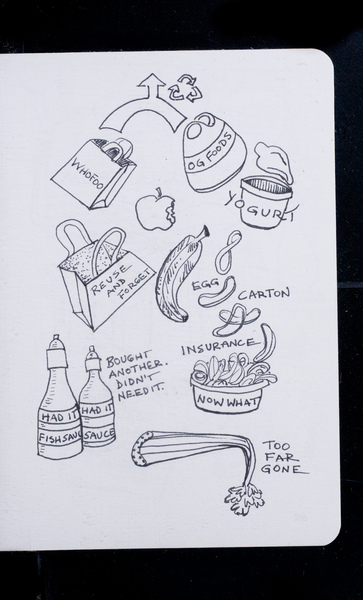 WHOFOO
OG FOODS
YOGURT
REUSE
AND
FORGET
EGG
CARTON
INSURANCE
BOUGHT
ANOTHER.
DIDN'T
NEED IT.
NOW WHAT
HAD IT
FISH SAUC
HAD IT
SAUCE
TOO
FAR
GONE